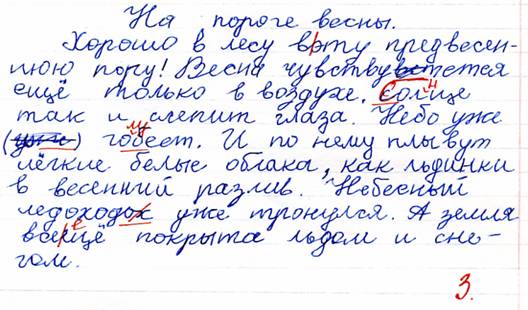 На пороге весны.
Хорошо в лесу вэту предвесен-
нюю пору! Весна чувствуется
ещё только в воздухе. Солце
так и слепит глаза. Небо уже
гобеет. И по нему плывут
лёгкие белые облака, как льдинки
в весенний разлив. Небесный
ледоход уже тронулся. А земля
всеещё покрыта льдом и сне-
гом.
3.